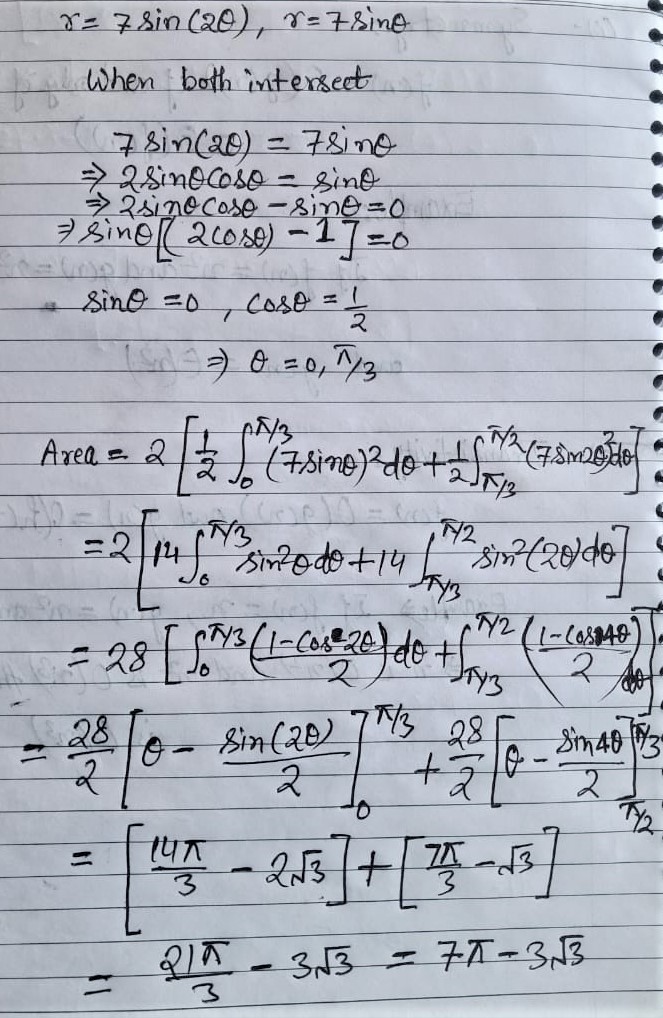 r = 7 sin(2θ), r = 7 sinθ
When both intersect
7 sin(2θ) = 7 sinθ
⇒ 2 sinθ cosθ = sinθ
⇒ 2 sinθ cosθ - sinθ = 0
⇒ sinθ [(2 cosθ) - 1] = 0
sinθ = 0, cosθ = 1/2
⇒ θ = 0, π/3
Area = 2 [ 1/2 ∫_0^{π/3} (7 sinθ)² dθ + 1/2 ∫_{π/3}^{π/2} (7 sin2θ)² dθ ]
= 2 [ 14 ∫_0^{π/3} sin²θ dθ + 14 ∫_{π/3}^{π/2} sin²(2θ) dθ ]
= 28 [ ∫_0^{π/3} ( (1 - cos 2θ)/2 ) dθ + ∫_{π/3}^{π/2} ( (1 - cos 4θ)/2 ) dθ ]
= 28/2 [ θ - sin(2θ)/2 ]_0^{π/3} + 28/2 [ θ - sin 4θ/2 ]_{π/2}^{π/3}
= [ 14π/3 - 2√3 ] + [ 7π/3 - √3 ]
= 21π/3 - 3√3 = 7π - 3√3